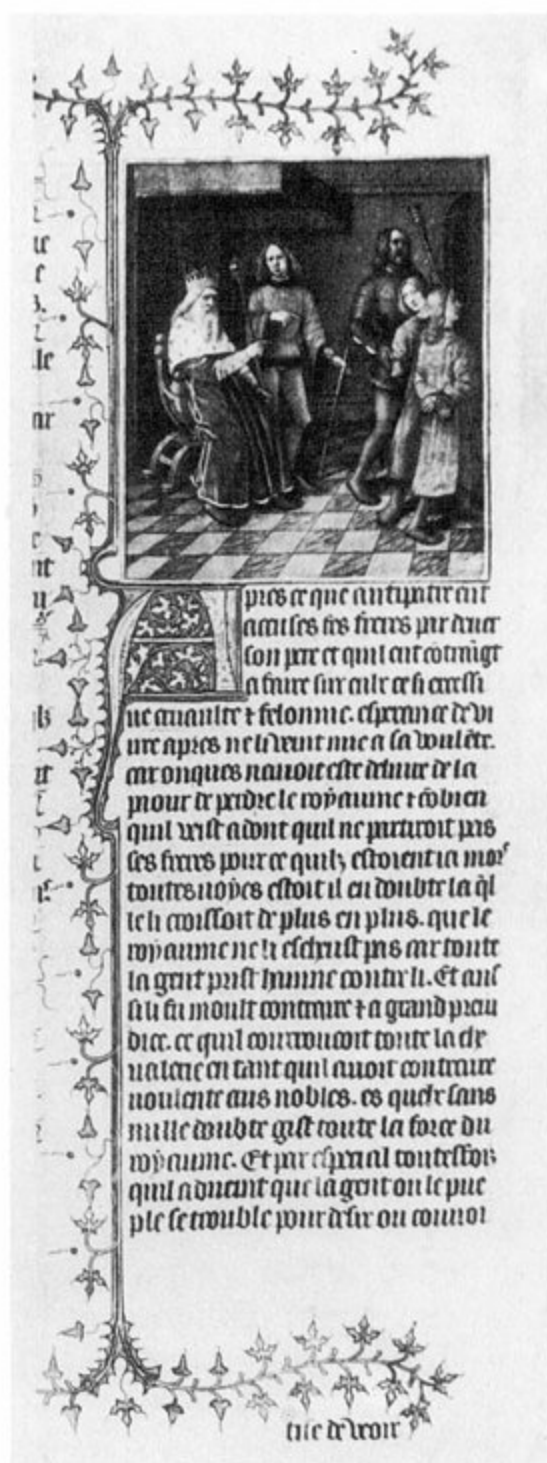 Apres ce que antipatir eut
accuses ses freres par deuer
son pere et quil eut cōtraigt
a faire sur eulr ce si excessi
ue cruaulte & felonnie. esperance de vi
ure apres ne li vint mie a sa voulēte.
car onques nauoit este deliure de la
paour de perdre le royaume & cōbien
quil veist adont quil ne partiroit pas
ses freres pour ce quilz estoient ia mors
toutesuoyes estoit il en doubte la q̄l
le li croissoit de plus en plus. que le
royaume ne li escheust pas car toute
la gent prist hainne contre li. Et aus
si li fu moult contraire & a grand preiu
dice. ce quil courroucoit toute la che
ualerie en tant quil auoit contraire
uoulente aus nobles. es quelx sans
nulle doubte gist toute la force du
royaume. Et par especial toutesfois
quil aduient que la gent ou le pue
ple se trouble pour desir ou conuoi
tise de veoir